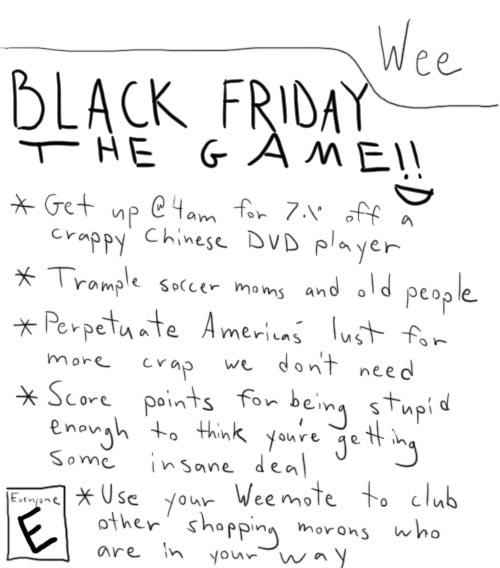 Wee
BLACK FRIDAY
THE GAME!!
* Get up @4am for 7% off a
crappy Chinese DVD player
* Trample soccer moms and old people
* Perpetuate America's lust for
more crap we don't need
* Score points for being stupid
enough to think you're getting
some insane deal
Everyone
E
* Use your Weemote to club
other shopping morons who
are in your way